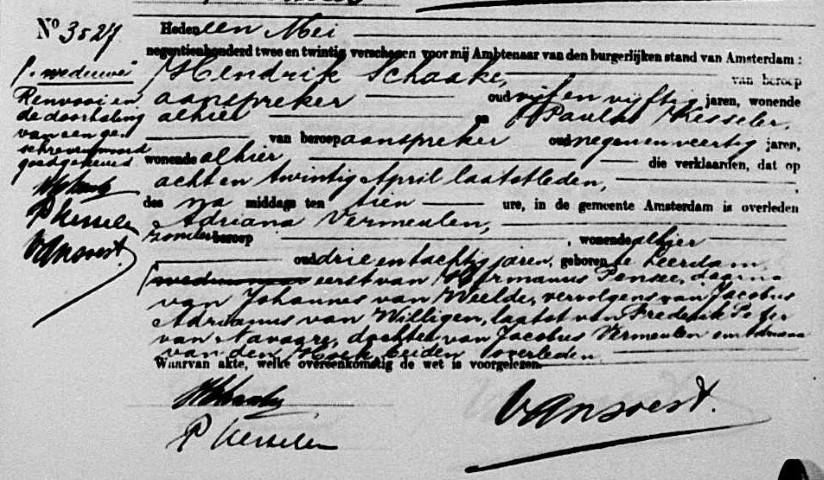 No 3527
Heden een Mei
negentienhonderd twee en twintig verschenen voor mij Ambtenaar van den burgerlijken stand van Amsterdam:
Hendrik Schaake, van beroep
aanspreker oud vijf en vijftig jaren, wonende
alhier en Paulus Kesseler,
van beroep aanspreker oud negen en veertig jaren,
wonende alhier die verklaarden, dat op
acht en twintig April laatstleden,
des na middags ten tien ure, in de gemeente Amsterdam is overleden
Adriana Vermeulen,
zonder beroep, wonende alhier
oud drie en tachtig jaren, geboren te Leerdam
weduwe eerst van Hermanus Pensee, daarna
van Johannes van Weelde, vervolgens van Jacobus
Adrianus van Willigen, laatst van Frederik Peter
van Navagre, dochter van Jacobus Vermeulen en Adriana
van den Hoek beiden overleden.
Waarvan akte, welke overeenkomstig de wet is voorgelezen.
P Kesseler
van Soest.
weduwe
Renvooi en
de doorhaling
van een ge-
schreven woord
goedgekeurd
P Kesseler
van Soest.